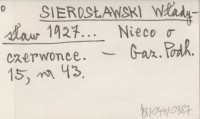 SIEROSŁAWSKI Włady-
sław 1927... Nieco o
czerwonce. — Gaz. Podh.
15, nr 43.